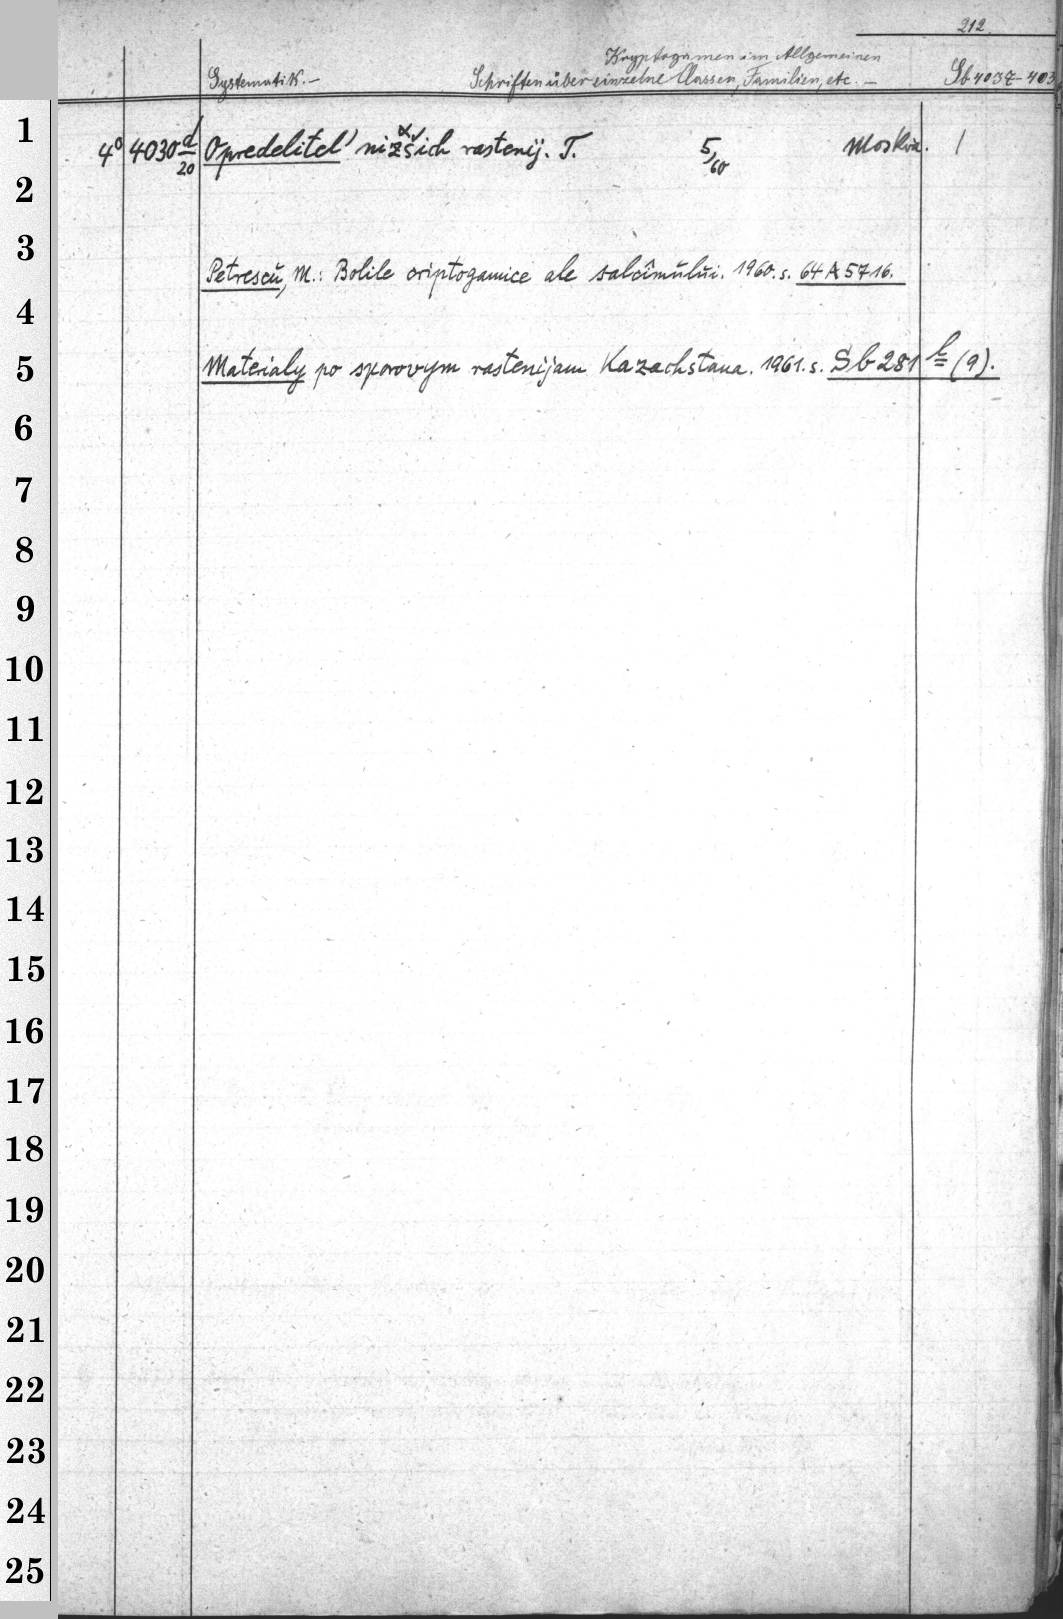 212.
Kryptogamen im Allgemeinen
Systematik.— Schriften über einzelne Classen, Familien, etc. — Sb 4037-403
1 4° 4030 d/20 Opredelitel' nižšich rastenij. T. 5/60 Moskva. 1
2
3 Petrescŭ, M.: Bolile criptogamice ale salcîmŭlŭi. 1960. s. 64 A 5716.
4
5 Materialy po sporovym rastenijam Kazachstana. 1961. s. Sb 281 h (9).
6
7
8
9
10
11
12
13
14
15
16
17
18
19
20
21
22
23
24
25